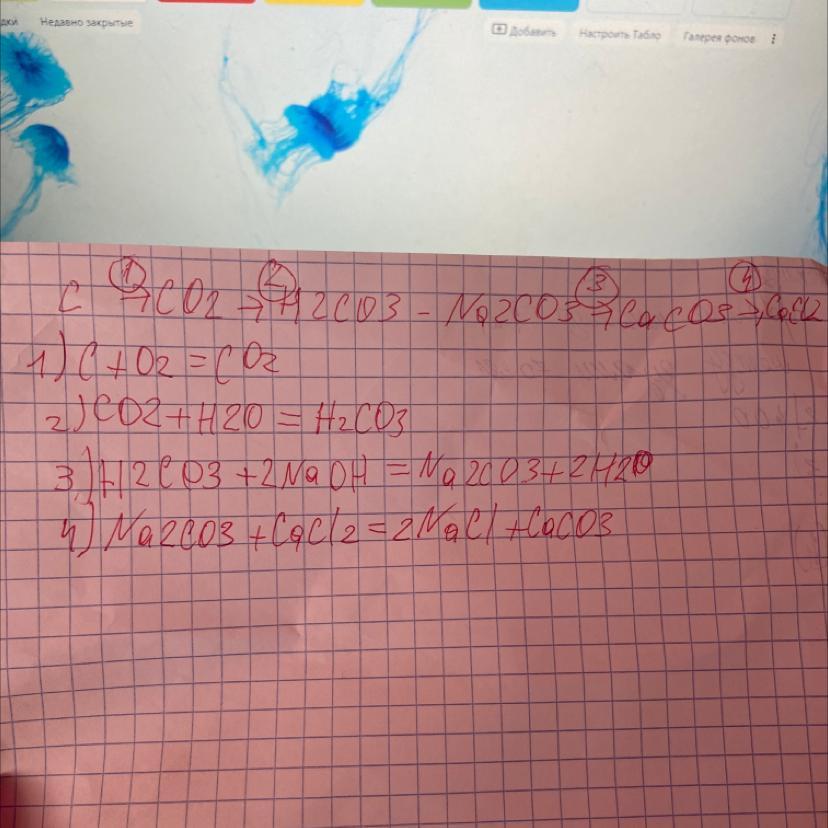 дки Недавно закрытые Добавить Настроить Табло Галерея фонов
1 2 3 4
C → CO2 → H2CO3 - Na2CO3 → CaCO3 → CaCl2
1) C + O2 = CO2
2) CO2 + H2O = H2CO3
3) H2CO3 + 2NaOH = Na2CO3 + 2H2O
4) Na2CO3 + CaCl2 = 2NaCl + CaCO3